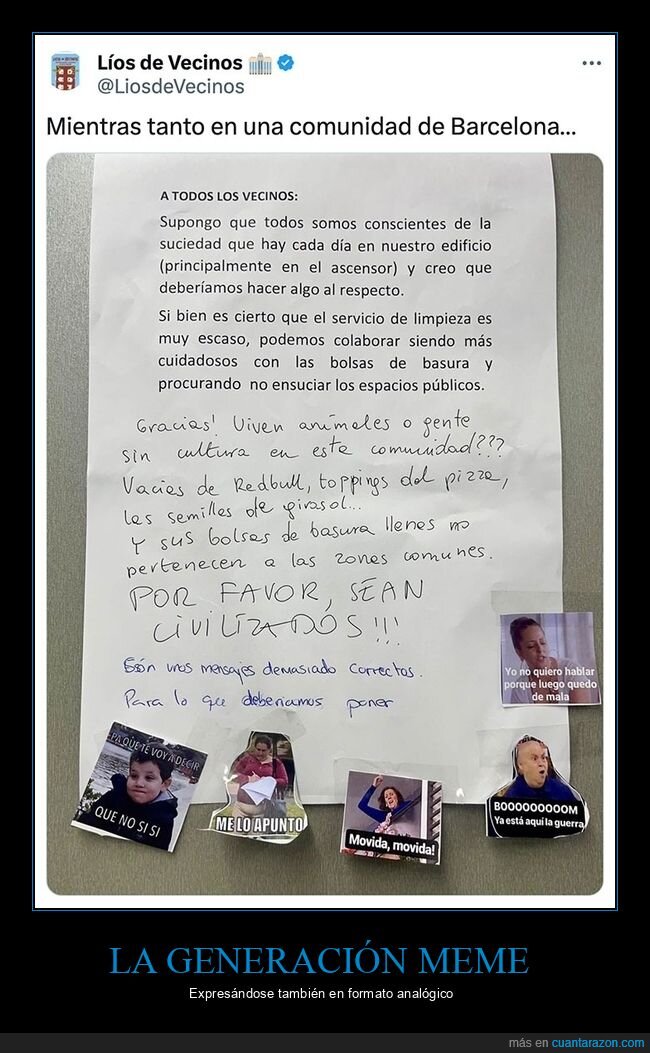 Líos de Vecinos
@LiosdeVecinos
Mientras tanto en una comunidad de Barcelona...
A TODOS LOS VECINOS:
Supongo que todos somos conscientes de la
suciedad que hay cada día en nuestro edificio
(principalmente en el ascensor) y creo que
deberíamos hacer algo al respecto.
Si bien es cierto que el servicio de limpieza es
muy escaso, podemos colaborar siendo más
cuidadosos con las bolsas de basura y
procurando no ensuciar los espacios públicos.
Gracias! Viven animeles o gente
sin cultura en este comunidad???
Vacies de Redbull, toppings del pizze,
les semilles de girasol...
Y sus bolses de basura llenes no
pertenecen a las zones comunes.
POR FAVOR, SEAN
CIVILIZADOS!!!
Són unos mensajes demasiado correctos.
Para lo que deberiamos poner
Yo no quiero hablar
porque luego quedo
de mala
PA QUE TE VOY A DECIR
QUE NO SI SI
ME LO APUNTO
Movida, movida!
BOOOOOOOOOM
Ya está aquí la guerra
LA GENERACIÓN MEME
Expresándose también en formato analógico
más en cuantarazon.com